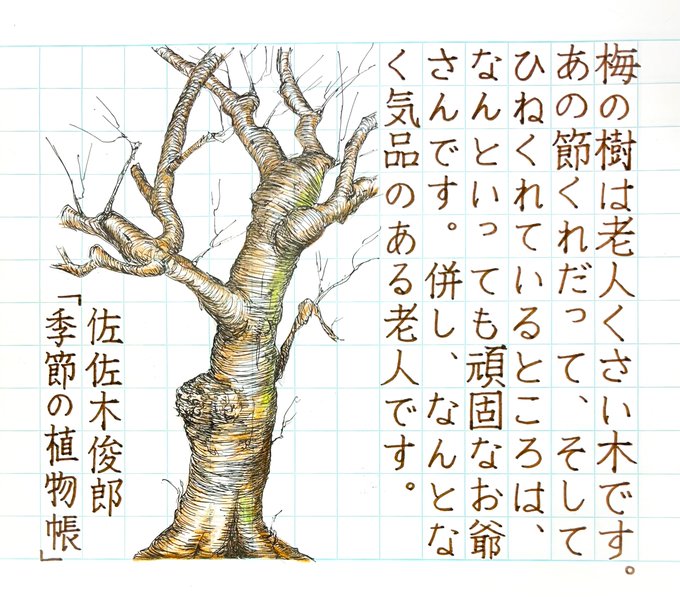 梅の樹は老人くさい木です。
あの節くれだって、そして
ひねくれているところは、
なんといっても頑固なお爺
さんです。併し、なんとな
く気品のある老人です。
佐佐木俊郎
「季節の植物帳」